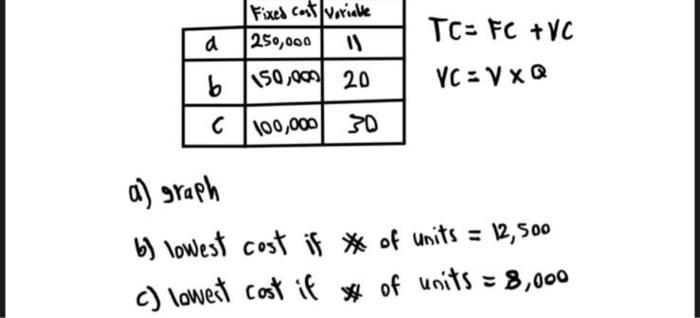 Fixed cost Variable
a 250,000 11
b 150,000 20
c 100,000 30
TC = FC + VC
VC = V x Q
a) graph
b) lowest cost if # of units = 12,500
c) lowest cost if # of units = 8,000